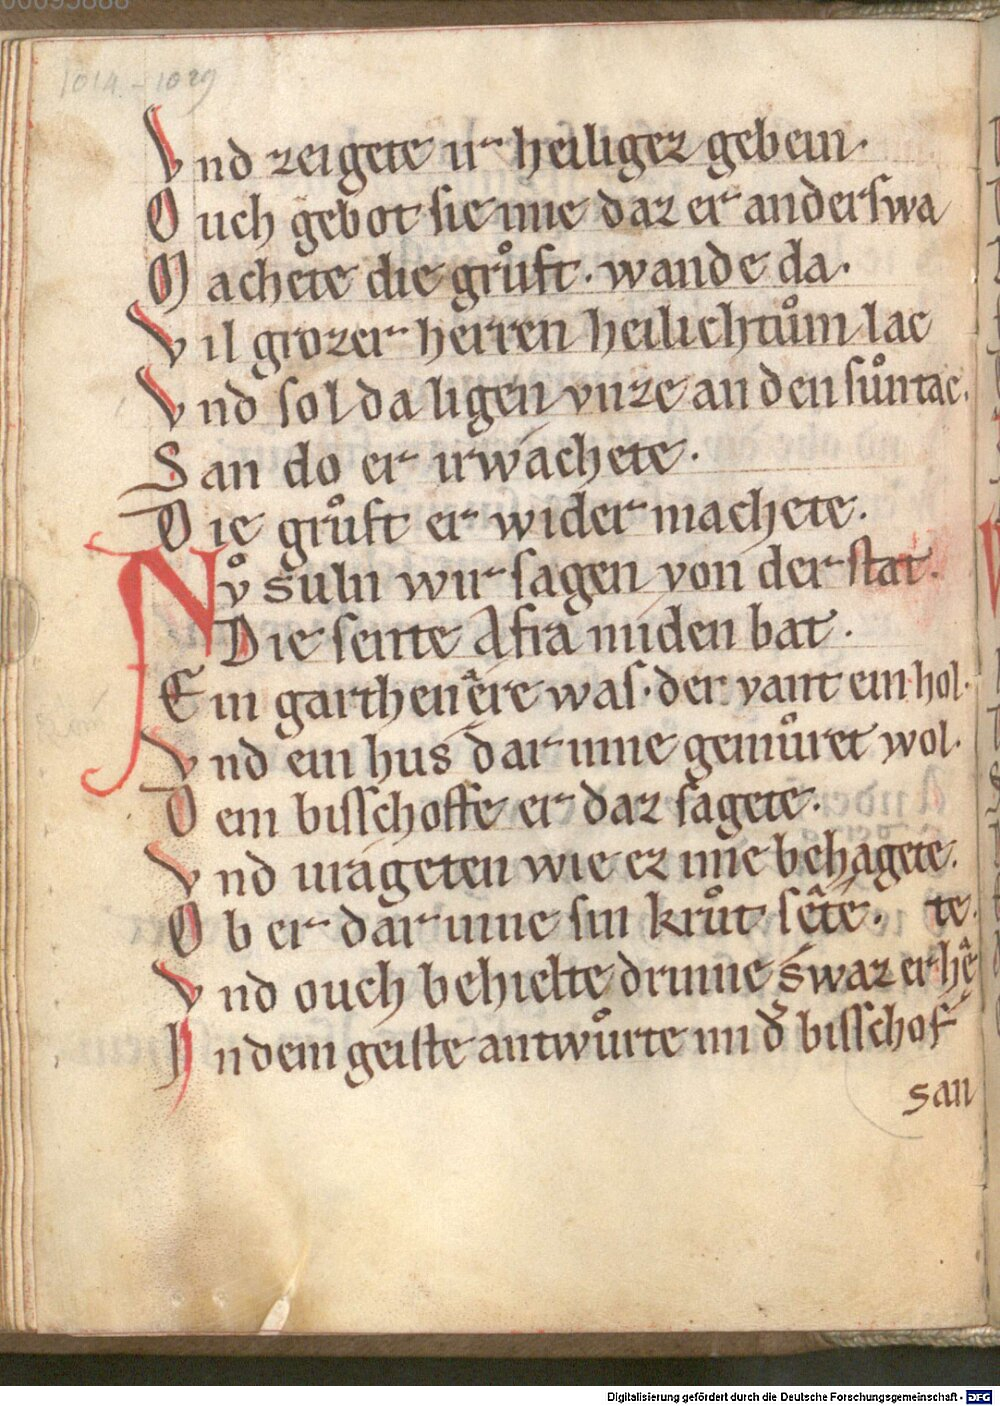 00095888
1014 - 1029
Vnd zeigete ir heiligez gebein.
Ouch gebot sie ime daz er anderswa
Machete die grůft. wande da.
Vil grozer herren heilichtům lac
Vnd sol da ligen vnze an den sůntac.
San do er irwachete.
Die grůft er wider machete.
Nv̊ suln wir sagen von der stat.
Die sente Afra miden bat.
Ein garthenêre was. der vant ein hol.
Vnd ein hus dar inne gemůret wol.
Dem bisschoffe er daz sagete.
Vnd urageten wie ez ime behagete.
Ob er dar inne sin krůt sête. te.
Vnd ouch behielte drinne swaz er hê
In dem geiste antwůrte im d᷎ bisschof
san
Digitalisierung gefördert durch die Deutsche Forschungsgemeinschaft - DFG